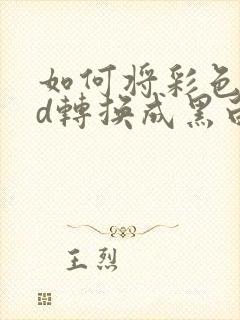 如何将彩色
d轉換成黑白
王烈